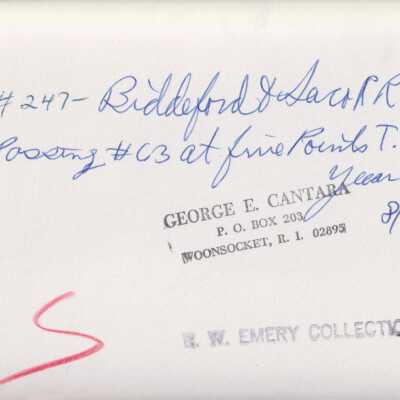 #247- Biddeford & Saco RR
Passing #63 at five Points T.
Year
8/
GEORGE E. CANTARA
P. O. BOX 203
WOONSOCKET, R. I. 02895
R. W. EMERY COLLECTIO